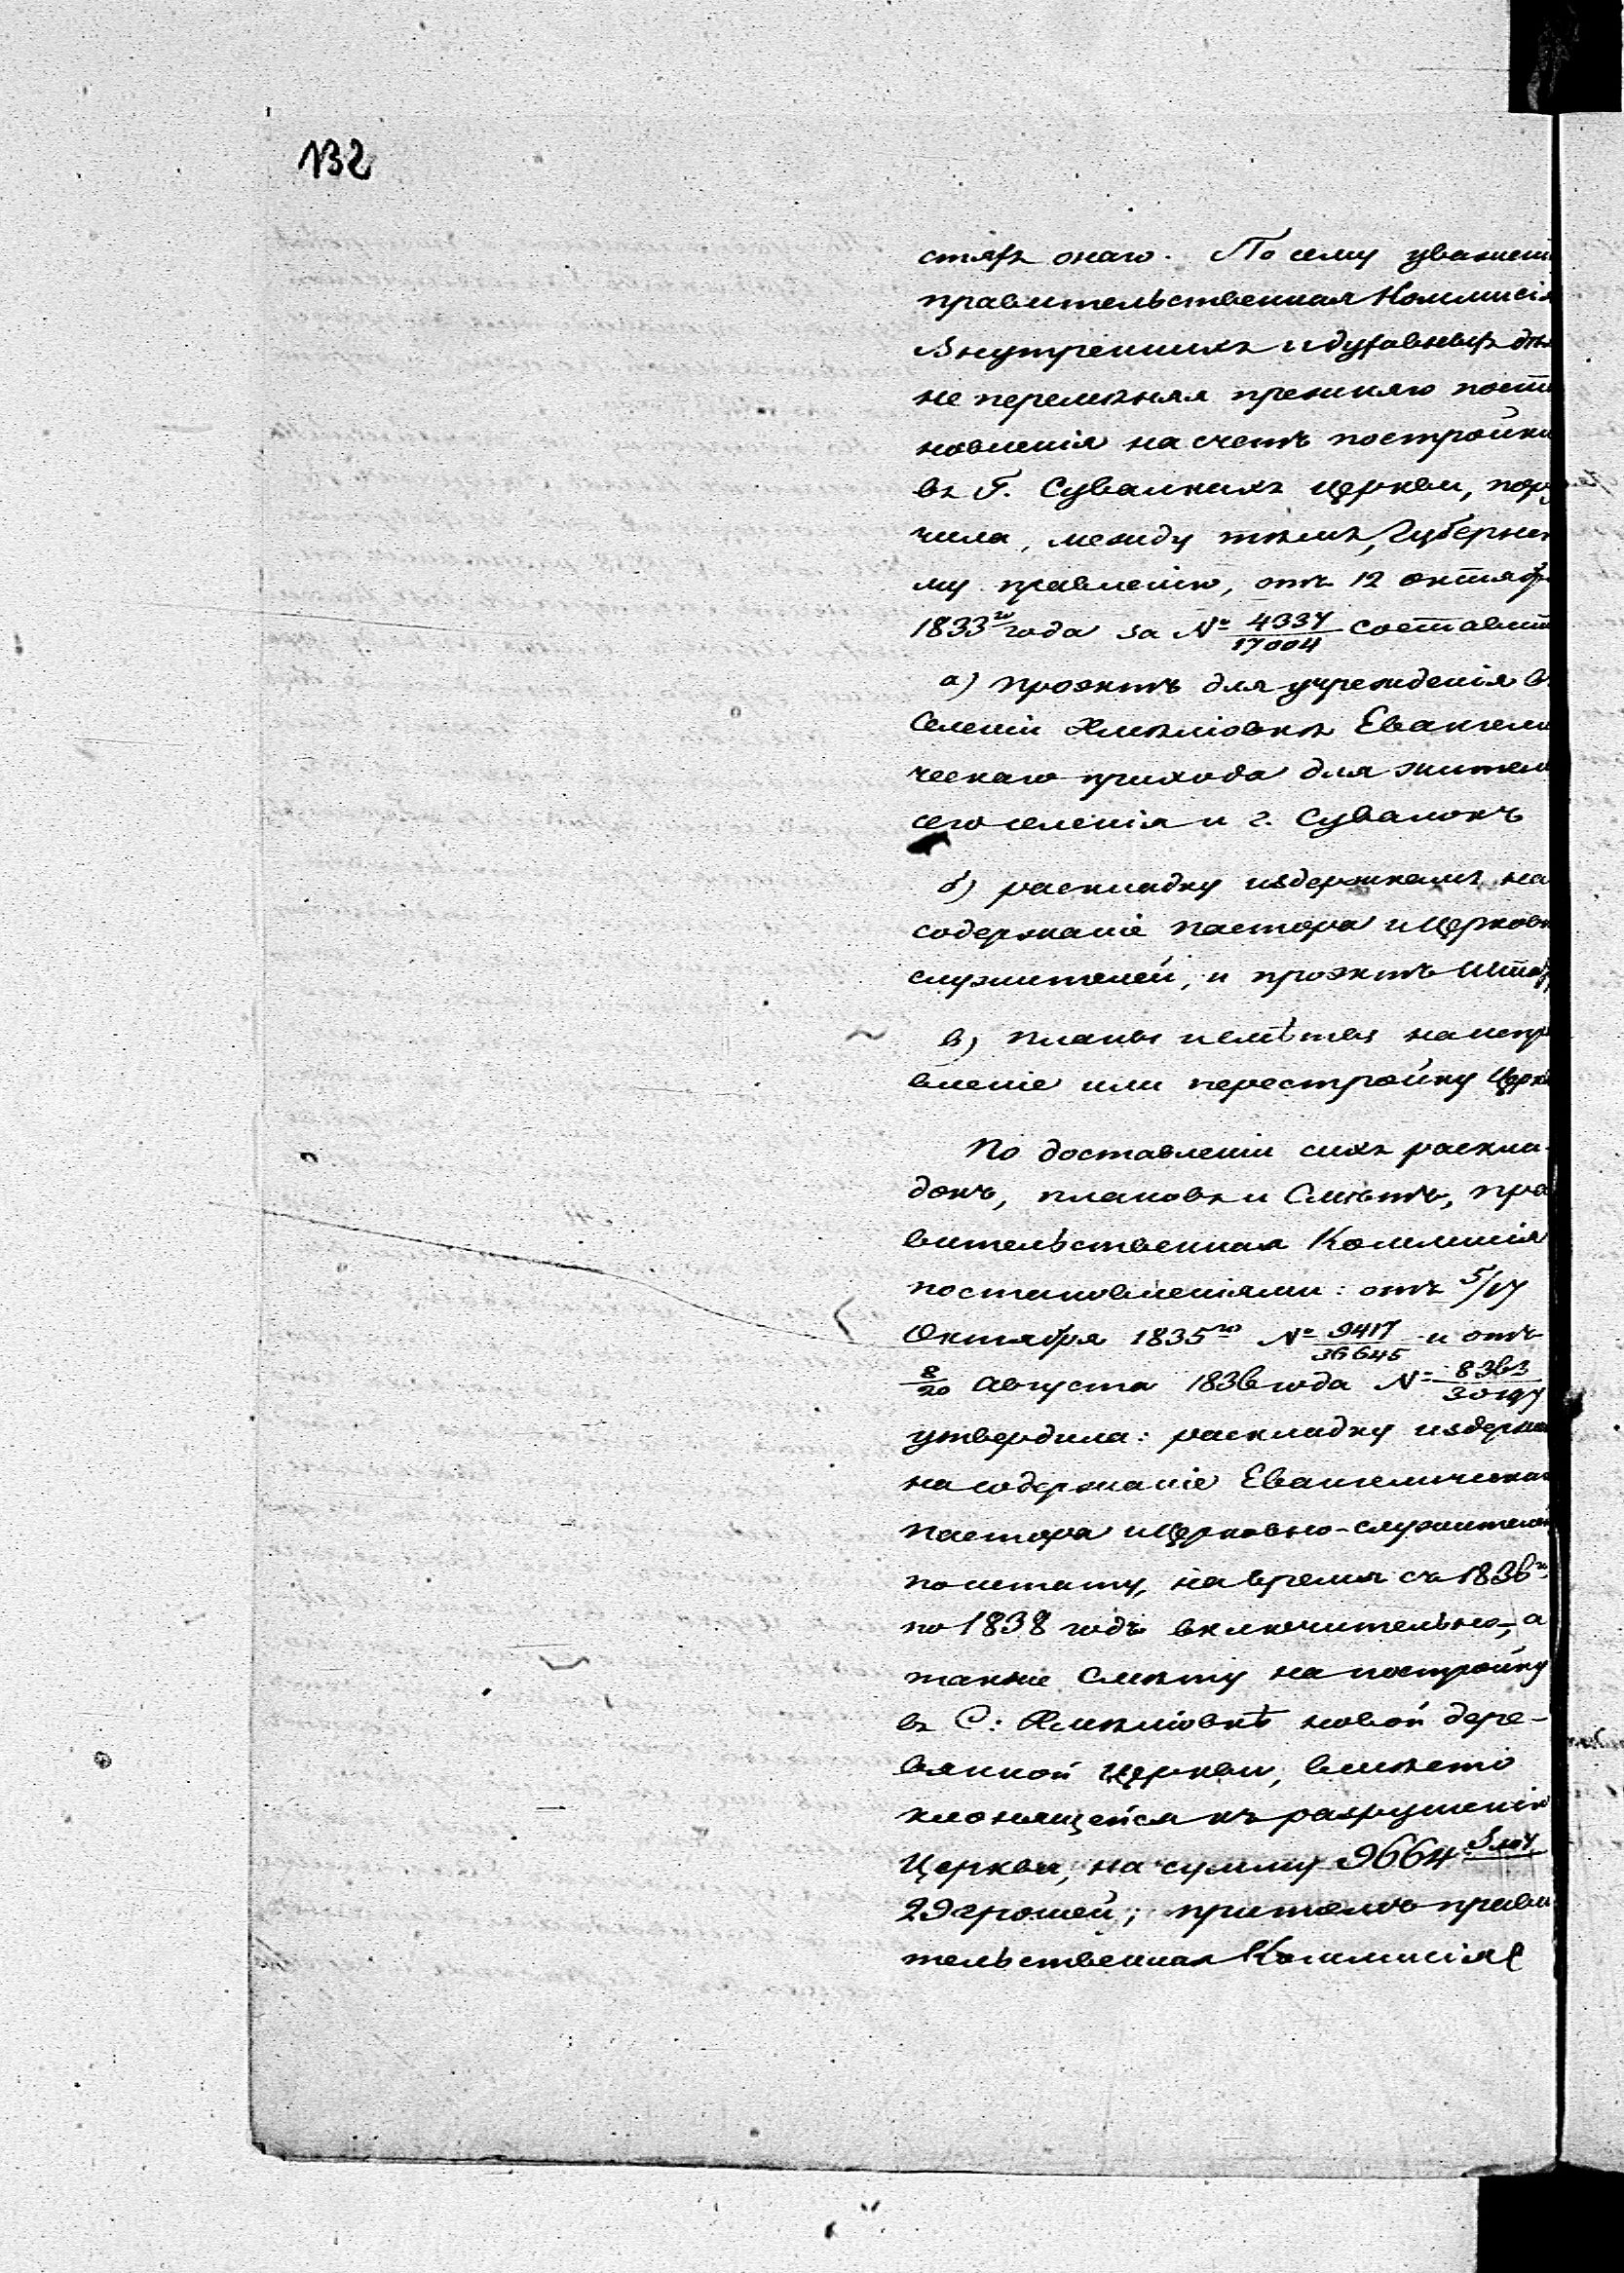 132
стяхъ онаго. По сему уважені
правительственная Коммисія
Внутреннихъ и духовныхъ дѣ
не перемѣняя прежняго поста
новленія на счетъ постройки
въ Г. Сувалкахъ церкви, пору
чила, между тѣмъ, Губернс
му правленію, отъ 12 октябр
1833го года за № 4337/17004 составит
а) проэктъ для учрежденія въ
Селеніи Хмѣлювкѣ Евангели
ческаго прихода для жител
сего селенія и г. Сувалокъ
б) раскладку издержкамъ на
содержаніе пастора и Церковн
служителей, и проэктъ Штат
в) планы и смѣты на испр
вленіе или перестройку Церкв
По доставленіи сихъ раскла-
докъ, плановъ и Смѣтъ, пра
вительственная Коммисія
постановленіями: отъ 5/17
Октября 1835го № 9417/36645 и отъ
8/20 Августа 1836 года №
утвердила: раскладку издерж
на содержаніе Евангелическа
пастора и Церковно-служителей
по штату, на время съ 1836го
по 1838 годъ включительно, а
также Смѣту на постройку
въ С: Хмѣлювкѣ новой дере-
вянной церкви, вмѣсто
клонящейся къ разрушенію
Церкви, на сумму 9664 Злот
29 грошей; притомъ прави
тельственная Коммисія